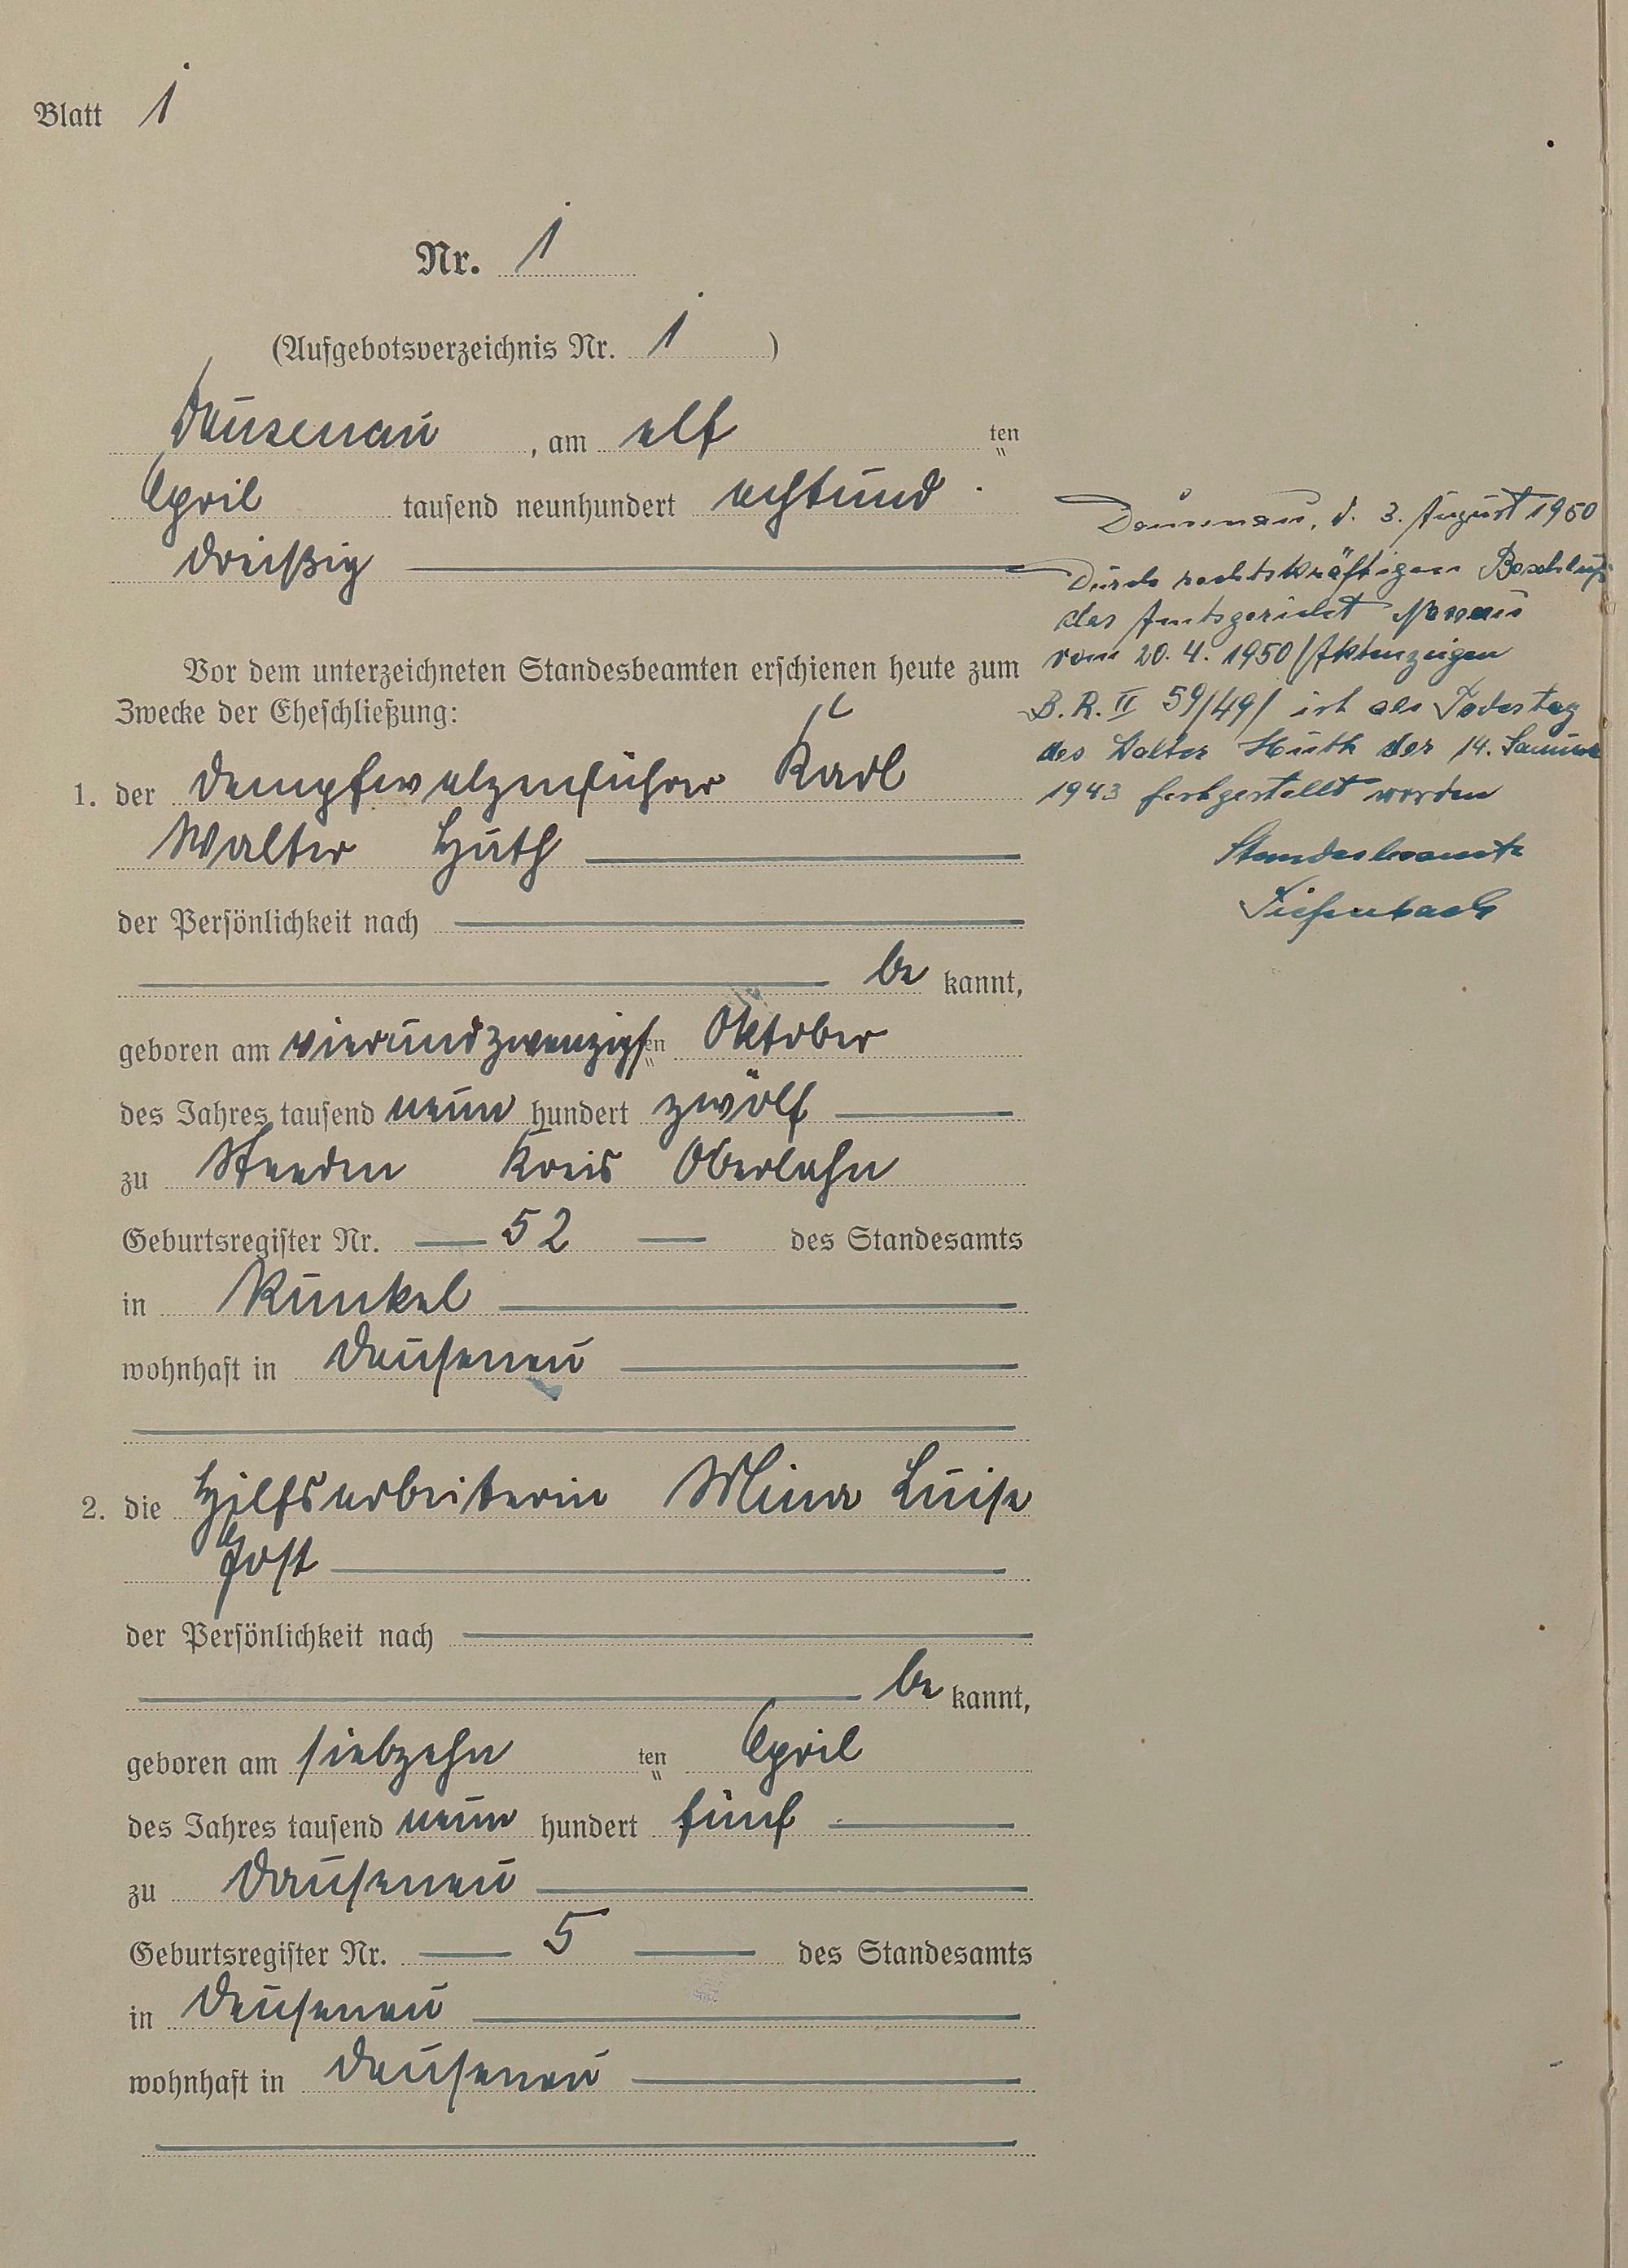 Blatt 1
Nr. 1
(Aufgebotsverzeichnis Nr. 1)
Dausenau, am elf ten
April tausend neunhundert achtund
dreißig
Vor dem unterzeichneten Standesbeamten erschienen heute zum
Zwecke der Eheschließung:
1. der Dampfwalzenführer Karl
Walter Huth
der Persönlichkeit nach
be kannt,
geboren am vierundzwanzigsten Oktober
des Jahres tausend neun hundert zwölf
zu Steeden Kreis Oberlahn
Geburtsregister Nr. 52 des Standesamts
in Runkel
wohnhaft in Dausenau
2. die Hilfsarbeiterin Mina Luise
Jost
der Persönlichkeit nach
be kannt,
geboren am siebzehn ten April
des Jahres tausend neun hundert fünf
zu Dausenau
Geburtsregister Nr. 5 des Standesamts
in Dausenau
wohnhaft in Dausenau
Dausenau, d. 3. August 1950
Durch rechtskräftigen Beschluß
des Amtsgericht Nassau
vom 20.4.1950 (Aktenzeigen
B.R. II 59/49) ist als Todestag
des Walter Huth der 14. Januar
1943 festgestellt worden
Standesbeamte
Tiefenbach